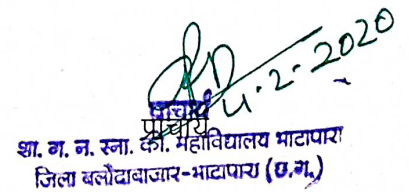 4-2-2020
प्राचार्य
प्राचार्य
शा. ग. न. स्ना. को. महाविद्यालय भाटापारा
जिला बलौदाबाजार-भाटापारा (छ.ग.)